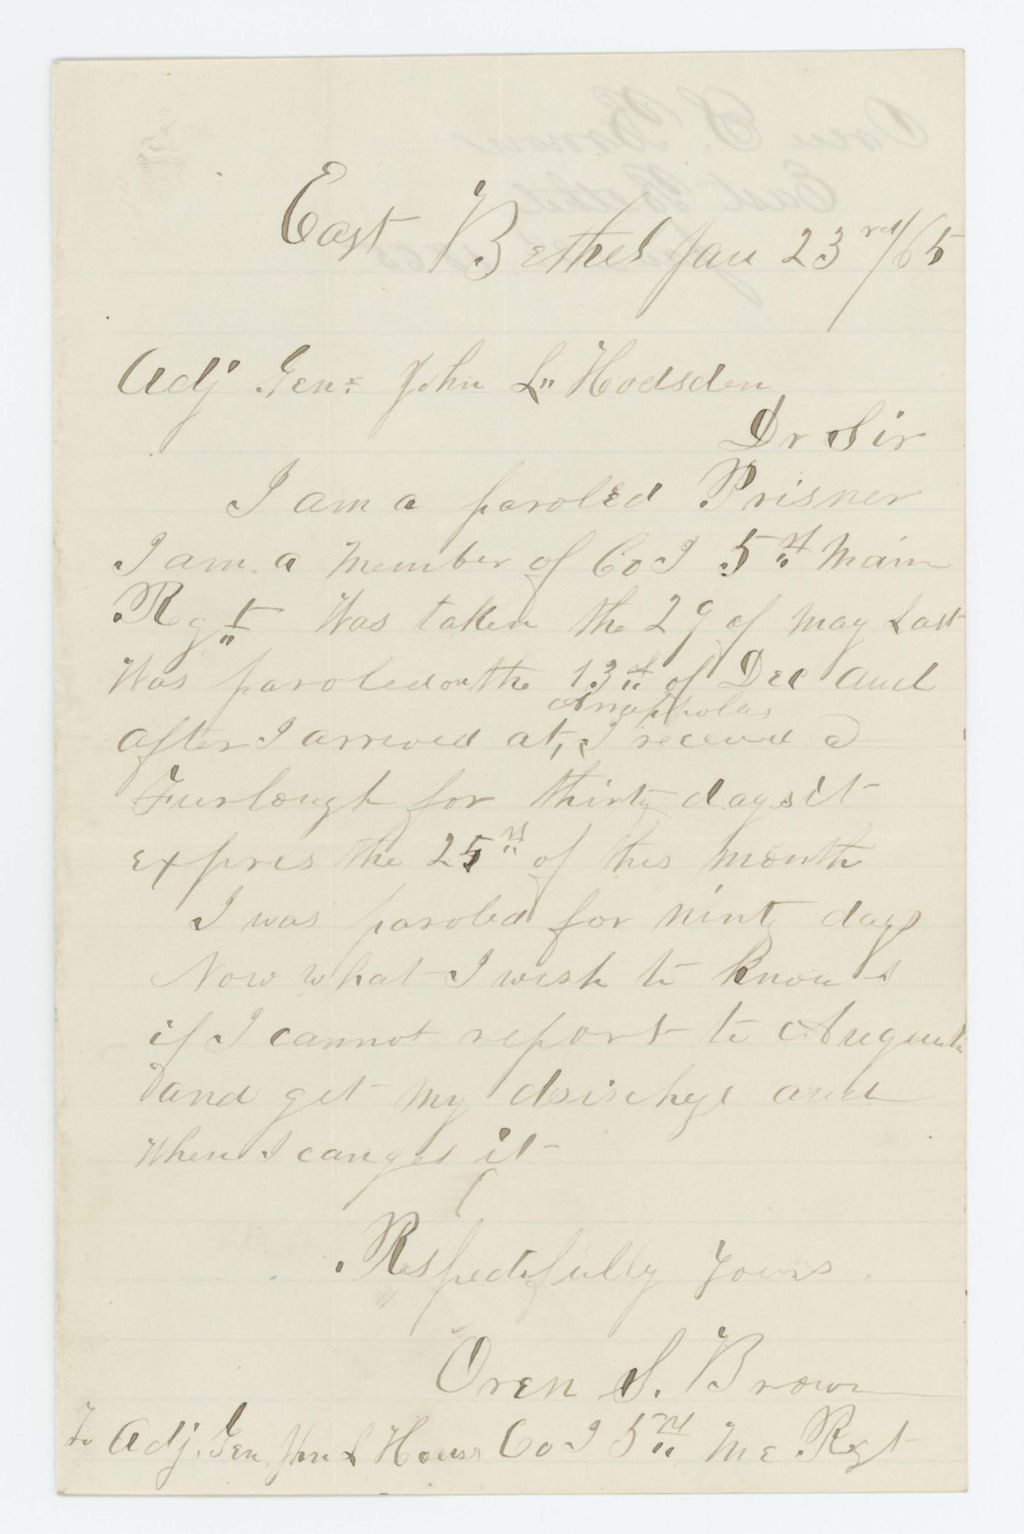 East Bethel Jan 23rd/65
Adj Gen. John L. Hodsden
Dr Sir
I am a paroled Prisner
I am a member of Co I 5th Main
Rgt Was taken the 29 of May Last
Was paroled on the 13th of Dec and
Annappolas
after I arrived at, I received a
Furlough for thirty days it
expires the 25th of this month
I was paroled for ninty days
Now what I wish to know is
if I cannot report to Augusta
and get my and
when I can get it
Respectfully Yours
Oren S. Brown
To Adj. Gen. Jhn L Co I 5th Me Regt